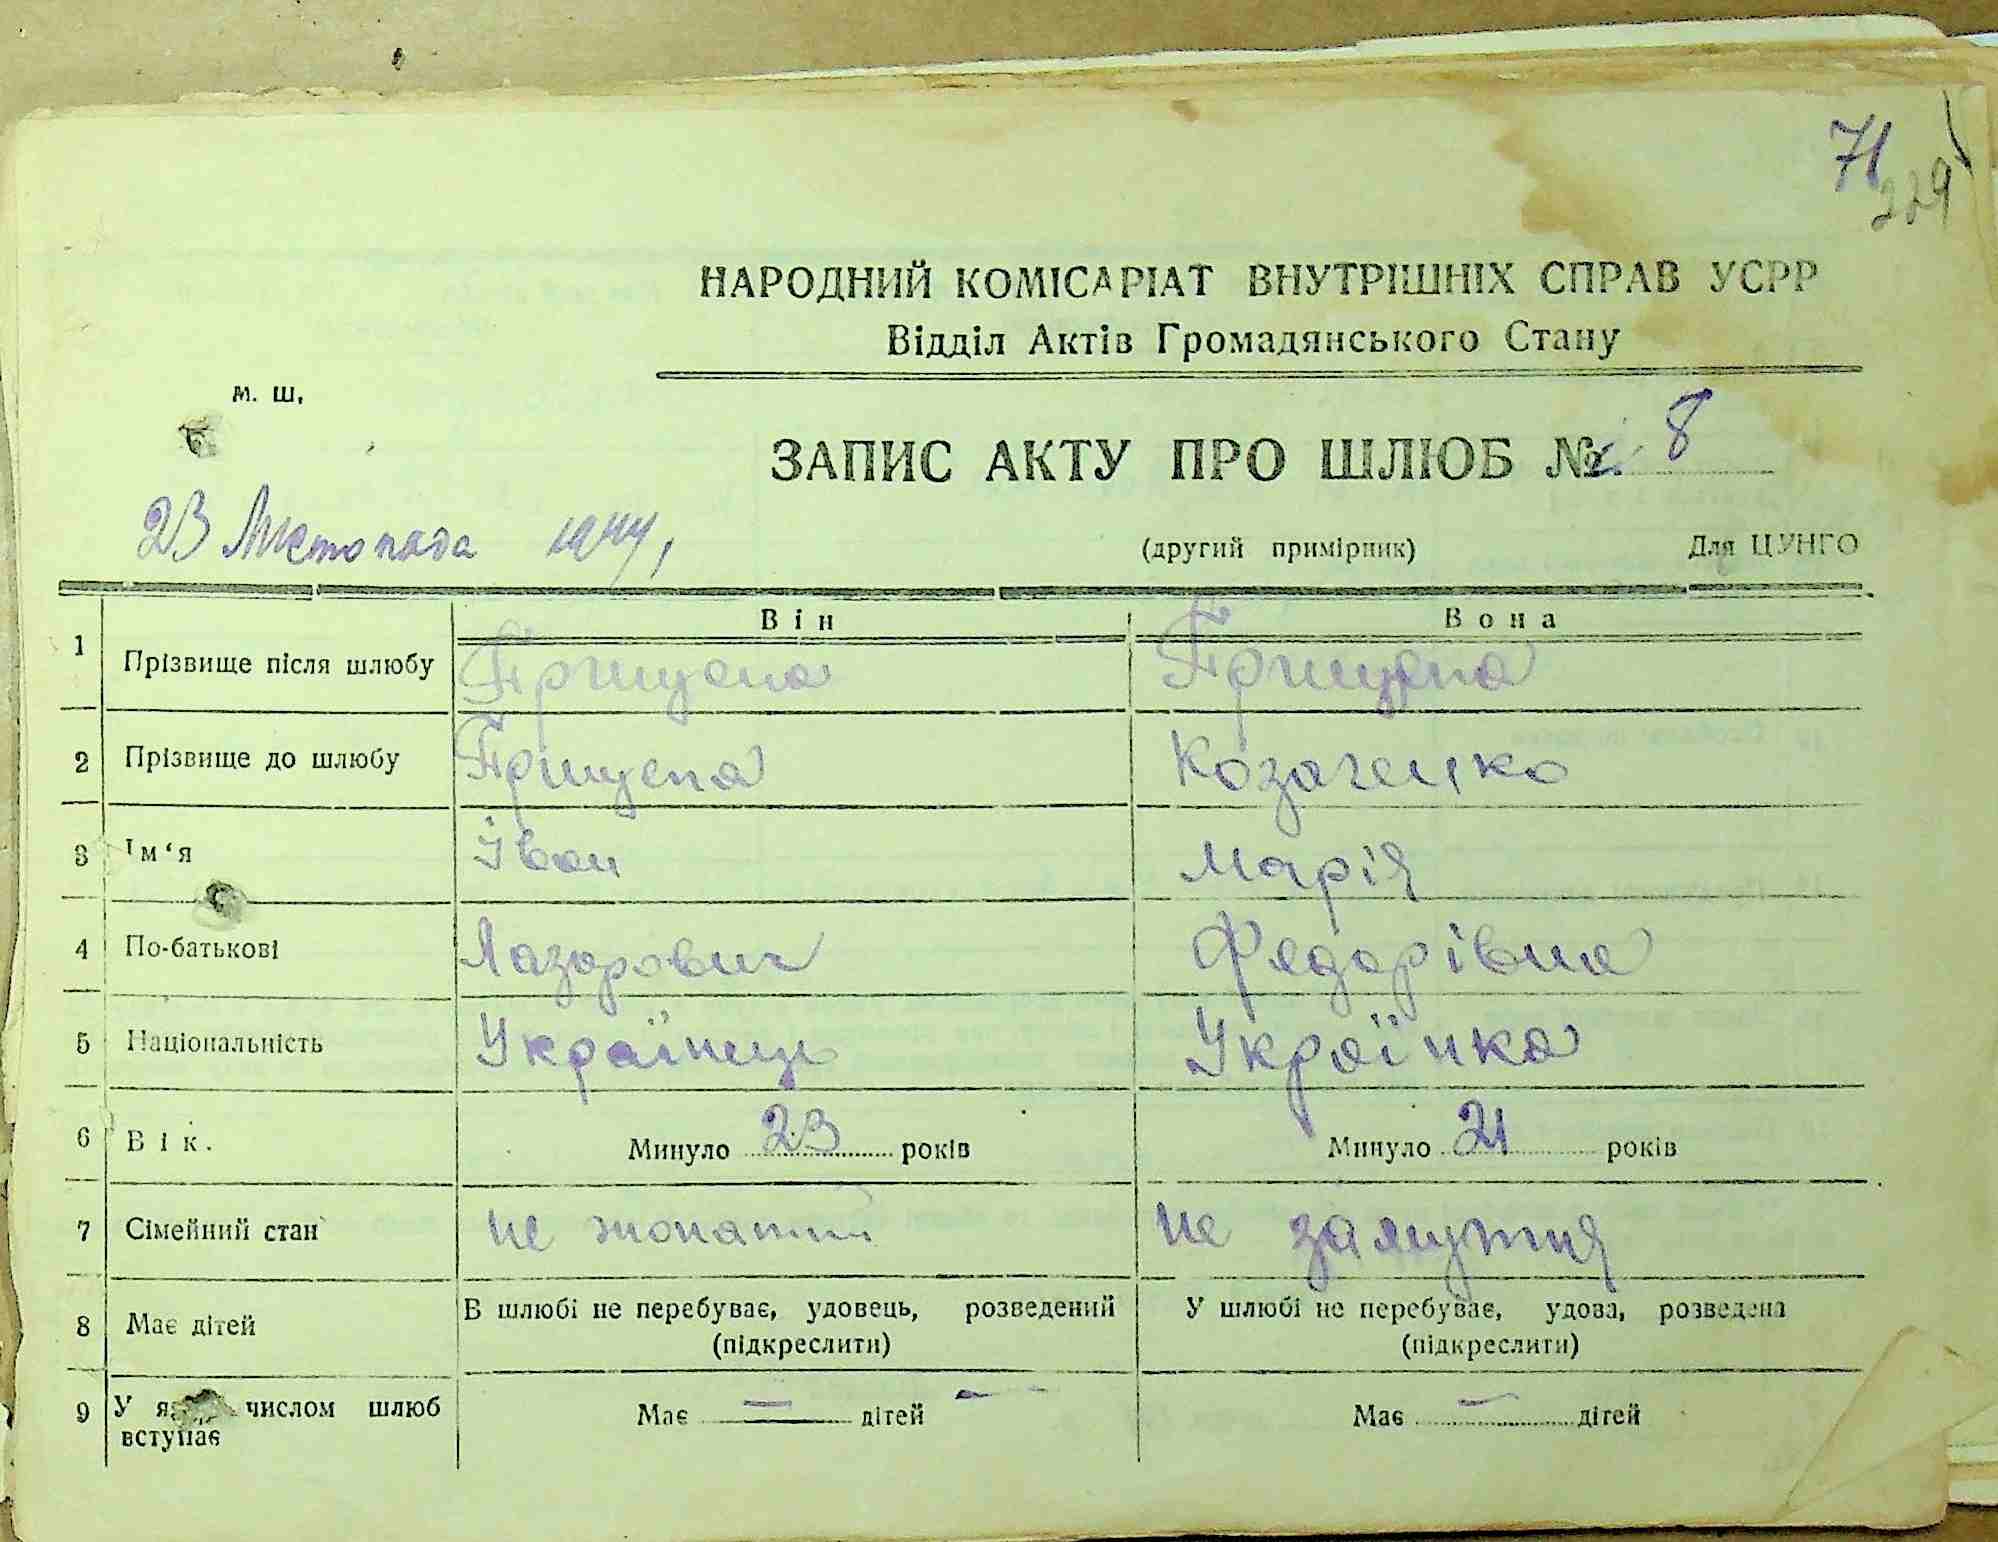 71
229
НАРОДНИЙ КОМІСАРІАТ ВНУТРІШНІХ СПРАВ УСРР
Відділ Актів Громадянського Стану
м. ш.
ЗАПИС АКТУ ПРО ШЛЮБ № 8
23 Листопада 1944,
(другий примірник) Для ЦУНГО
Він Вона
1 Прізвище після шлюбу Прищепа Прищепа
2 Прізвище до шлюбу Прищепа Козаченко
3 Ім'я Іван Марія
4 По-батькові Лазарович Федорівна
5 Національність Українець Українка
6 Вік. Минуло 23 років Минуло 21 років
7 Сімейний стан не жонатий не замужня
8 Має дітей В шлюбі не перебуває, удовець, розведений У шлюбі не перебуває, удова, розведена
(підкреслити) (підкреслити)
9 У числом шлюб Має — дітей — Має — дітей
вступає